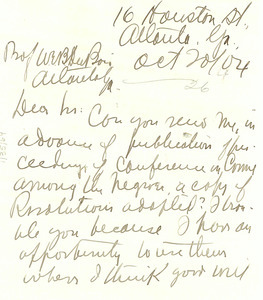 16 Houston St.
Atlanta, Ga.
Oct 20/04
Prof W.E.B. Du Bois
Atlanta Ga.
26
Dear Sir: Can you send me, in
advance of publication of pro-
ceedings of Conference on Crime
among the Negroes, a copy of
Resolutions adopted? I trou-
ble you because I have an
opportunity to use them
where I think good will